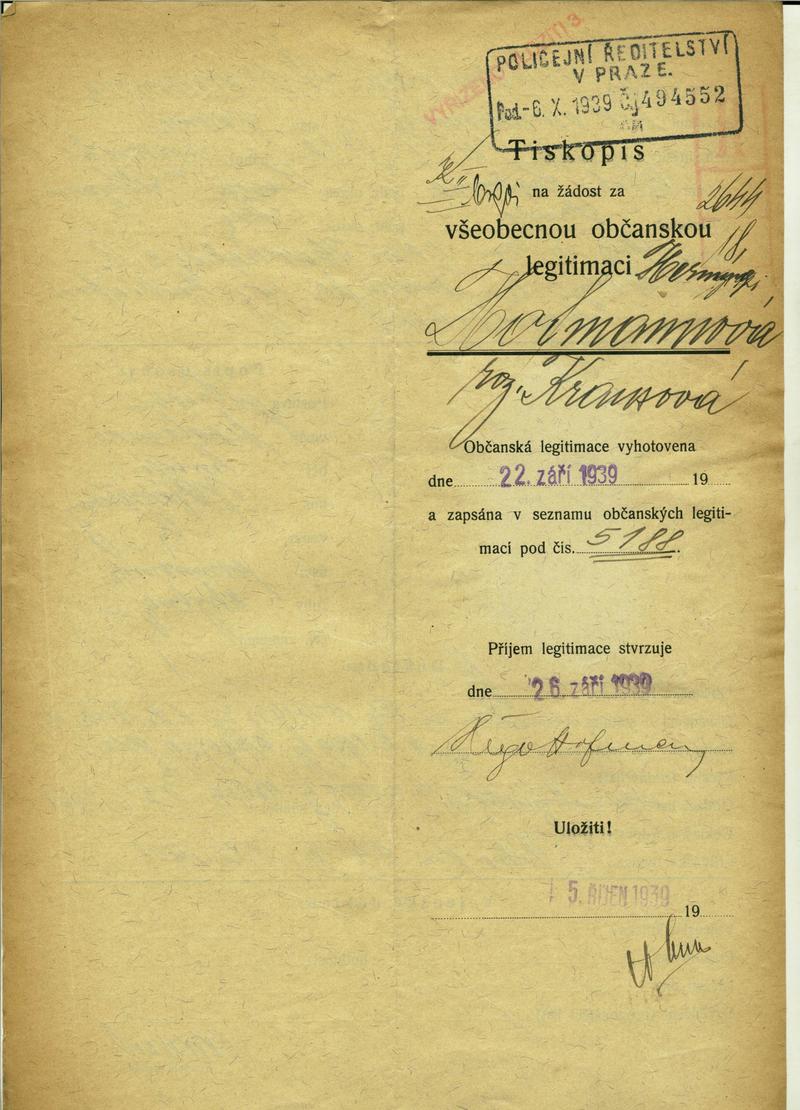 POLICEJNÍ ŘEDITELSTVÍ
V PRAZE.
Pod. -6. X. 1939 Čj 494552
Tiskopis
na žádost za
2644
18,
všeobecnou občanskou
legitimaci
Hofmannová
roz. Kraussová
Občanská legitimace vyhotovena
dne 22. září 1939 19
a zapsána v seznamu občanských legiti-
mací pod čís. 5188.
Příjem legitimace stvrzuje
dne 26. září 1939
Hugo Hofmann
Uložiti!
5. ŘÍJEN 1939 19